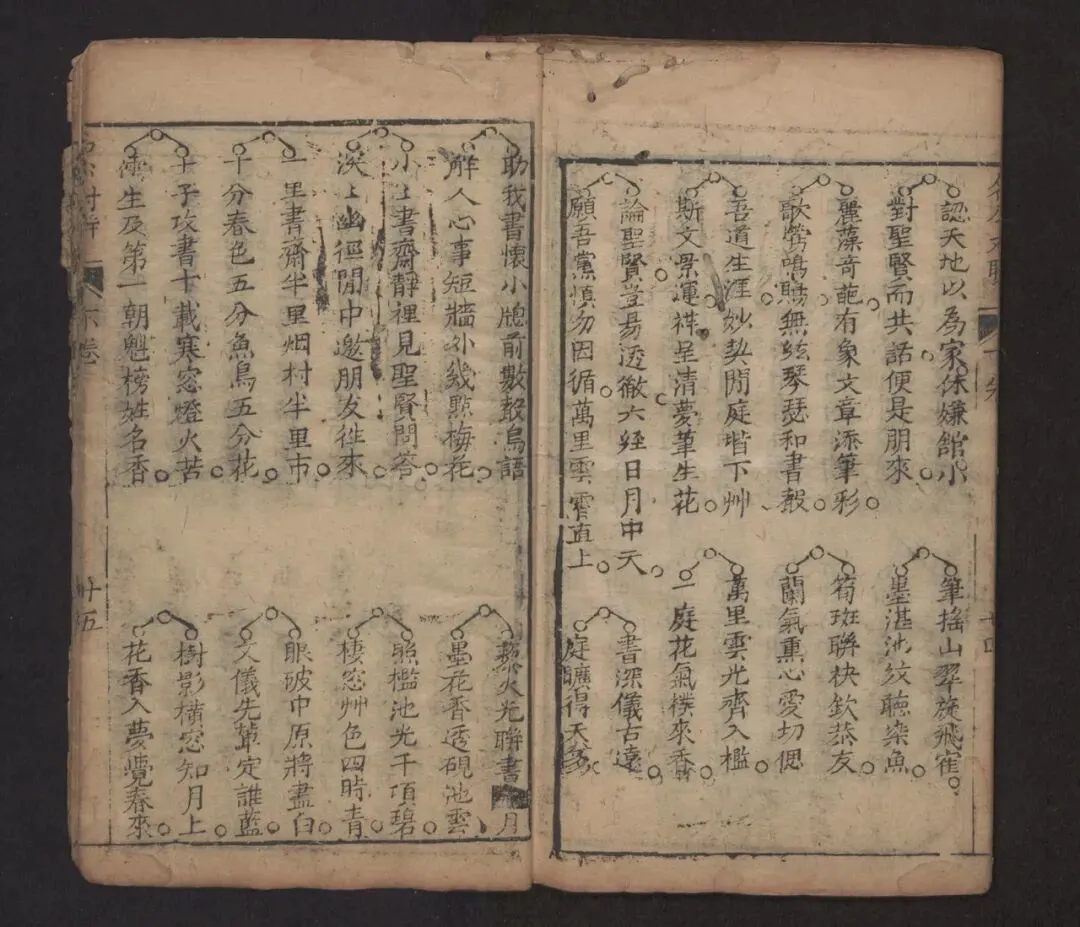 認天地以為家休嫌舘小
對聖賢而共話便是朋來
麗藻奇葩有象文章添筆彩
歌鶯鳴鵙無絃琴瑟和書聲
吾道生涯妙契閒庭堦下艸
斯文景運祥呈清夢筆生花
論聖賢登昜透徹六經日月中天
願吾黨慎勿因循萬里雲霄直上
筆搖山翠旋飛雀
墨湛池紋聴樂魚
筍斑聯袂欽恭友
蘭氣熏心愛切偲
萬里雲光齊入檻
一庭花氣樸來香
書深儀古遠
庭曠得天多
十四
助我書懷小牕前數聲鳥語
解人心事短牆外幾點梅花
小小書齋靜裡見聖賢問答
深深幽徑閒中邀朋友徃來
一里書齋半里烟村半里市
十分春色五分魚鳥五分花
士子攻書十載寒窓燈火苦
儒生及第一朝魁榜姓名香
藜火光聯書月
墨花香透硯池雲
照檻池光千項碧
棲窓艸色四時青
眼破中原將盡白
文儀先軰定誰藍
樹影橫窓知月上
花香入夢覺春來
卷
十五